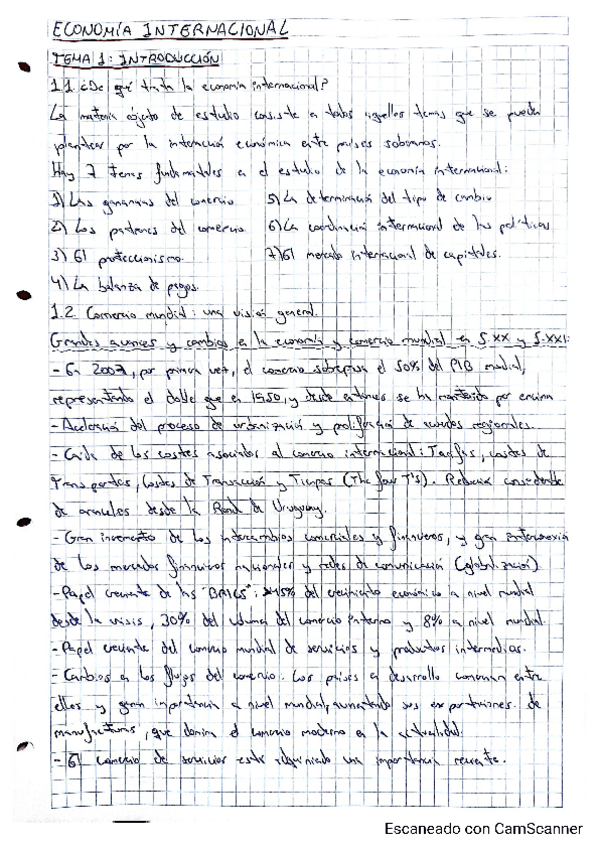 ECONOMÍA INTERNACIONAL
TEMA 1: INTRODUCCIÓN
1.1 ¿De qué trata la economía internacional?
La materia objeto de estudio consiste en todos aquellos temas que se puedan
plantear por la interacción económica entre países soberanos.
Hay 7 temas fundamentales en el estudio de la economía internacional:
1) Las ganancias del comercio
5) La determinación del tipo de cambio
2) Los patrones del comercio
6) La coordinación internacional de las políticas
3) El proteccionismo
7) El mercado internacional de capitales.
4) La balanza de pagos.
1.2 Comercio mundial: una visión general.
Grandes avances y cambios en la economía y comercio mundial en S.XX y S.XXI:
- En 2007, por primera vez, el comercio sobrepasa el 50% del PIB mundial,
representando el doble que en 1950, y desde entonces se ha mantenido por encima
- Aceleración del proceso de urbanización y proliferación de acuerdos regionales.
- Caída de los costes asociados al comercio internacional: Tarifas, costes de
Transportes, Costes de Transacción y Tiempos (The four T's). Reducción considerable
de aranceles desde la Ronda de Uruguay.
- Gran incremento de los intercambios comerciales y financieros, y gran interconexión
de los mercados financieros nacionales y redes de comunicación (globalización)
- Papel creciente de los "BRICS": 45% del crecimiento económico a nivel mundial
desde la crisis, 30% del volumen del comercio interno y 8% a nivel mundial.
- Papel creciente del comercio mundial de servicios y productos intermedios.
- Cambios en los flujos del comercio. Los países en desarrollo comercian entre
ellos y gran importancia a nivel mundial, aumentando sus exportaciones de
manufacturas, que domina el comercio moderno en la actualidad.
- El comercio de servicios está adquiriendo una importancia reciente.
Escaneado con CamScanner